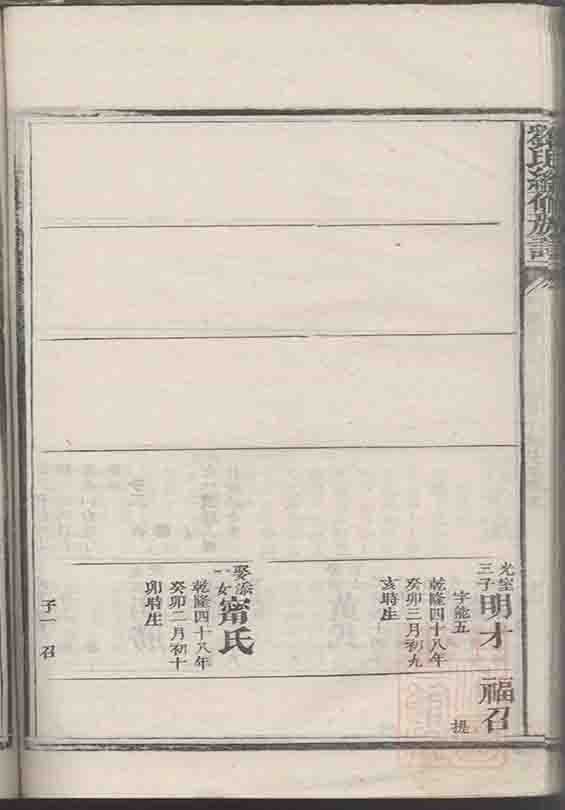 劉氏續修族譜
光室
三子
明才
字能五
乾隆四十八年
癸卯三月初九
亥時生
娶添
一女
甯氏
乾隆四十八年
癸卯二月初十
卯時生
子一 召
福召
提